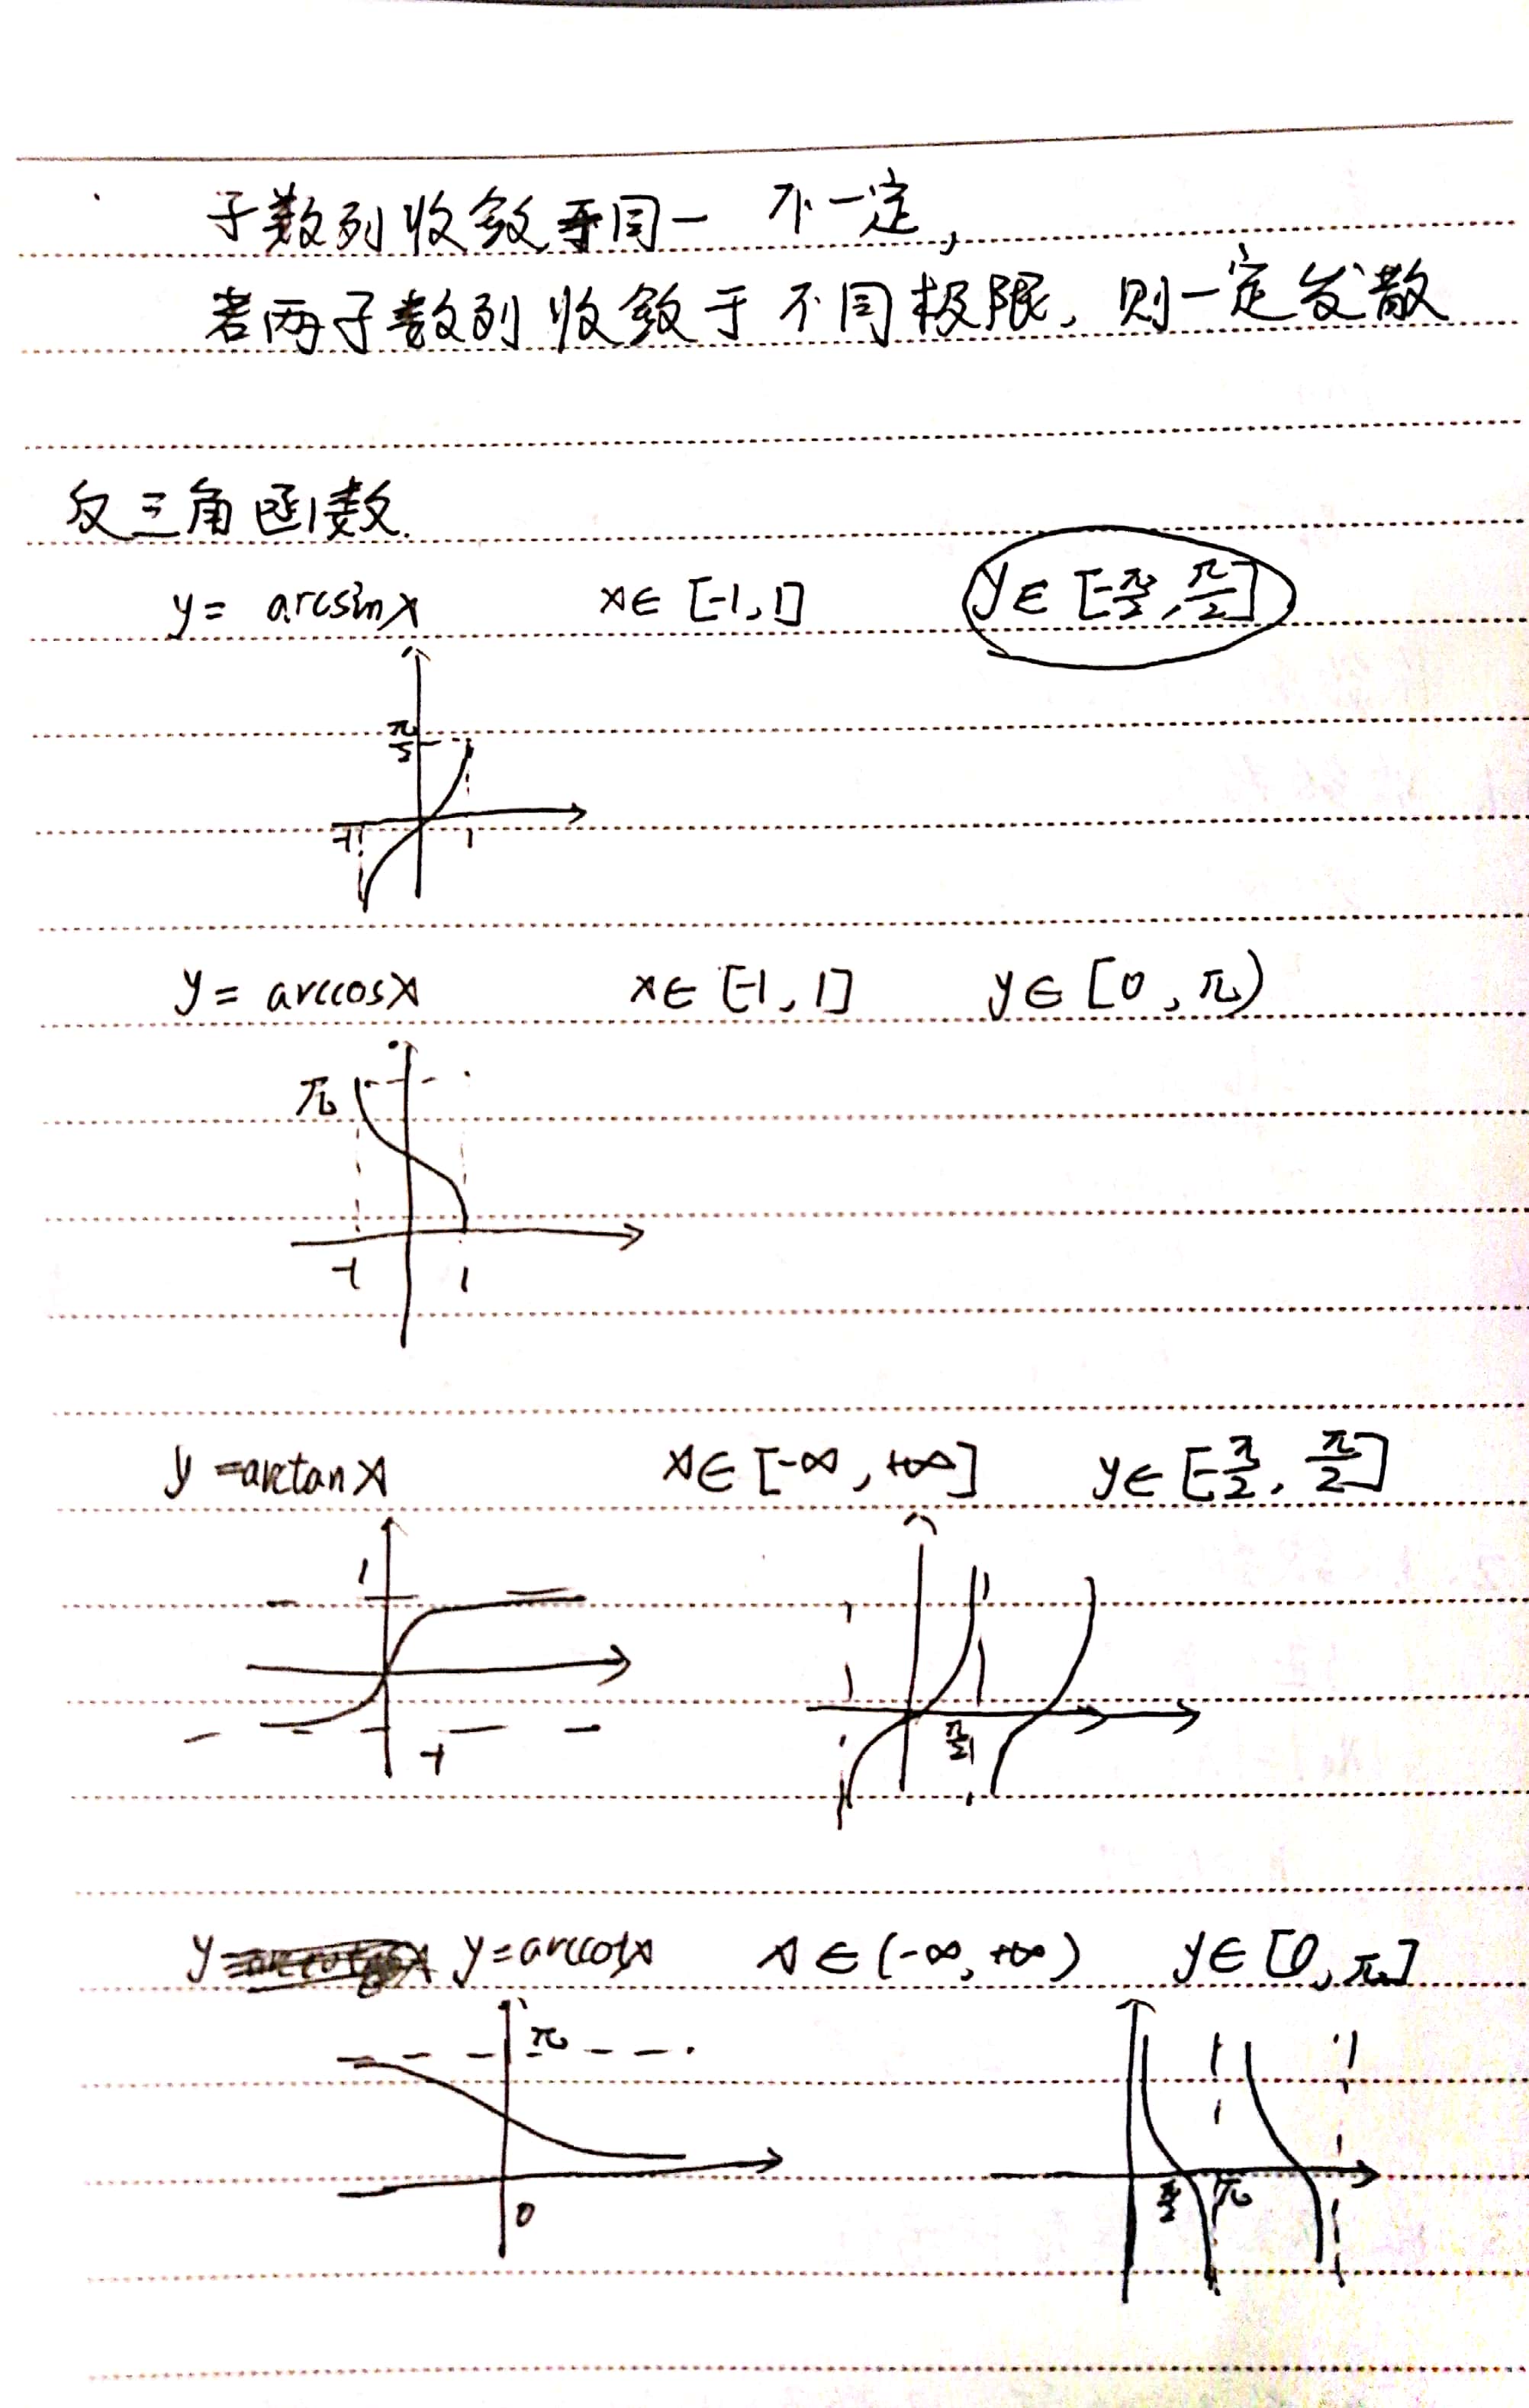 子数列收敛于同一 不一定,
若两子数列收敛于不同极限, 则一定发散
反三角函数.
y = arcsinx x∈[-1,1] y∈[-π/2, π/2]
π/2
-1 1
y = arccosx x∈[-1,1] y∈[0,π)
π
-1 1
y=arctanx x∈[-∞,+∞] y∈[-π/2, π/2]
1
π/2
-1
y= y=arccotx x∈(-∞,+∞) y∈[0,π]
π
π/2 π
0